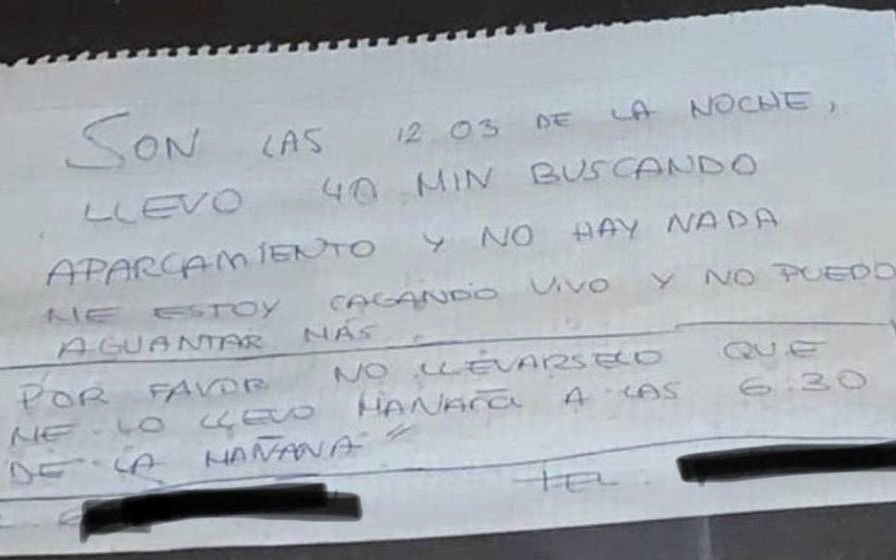 SON LAS 12 03 DE LA NOCHE,
LLEVO 40 MIN BUSCANDO
APARCAMIENTO Y NO HAY NADA
ME ESTOY CAGANDO VIVO Y NO PUEDO
AGUANTAR MÁS.
POR FAVOR NO LLEVARSELO QUE
ME LO LLEVO MAÑANA A LAS 6:30
DE LA MAÑANA
TEL.